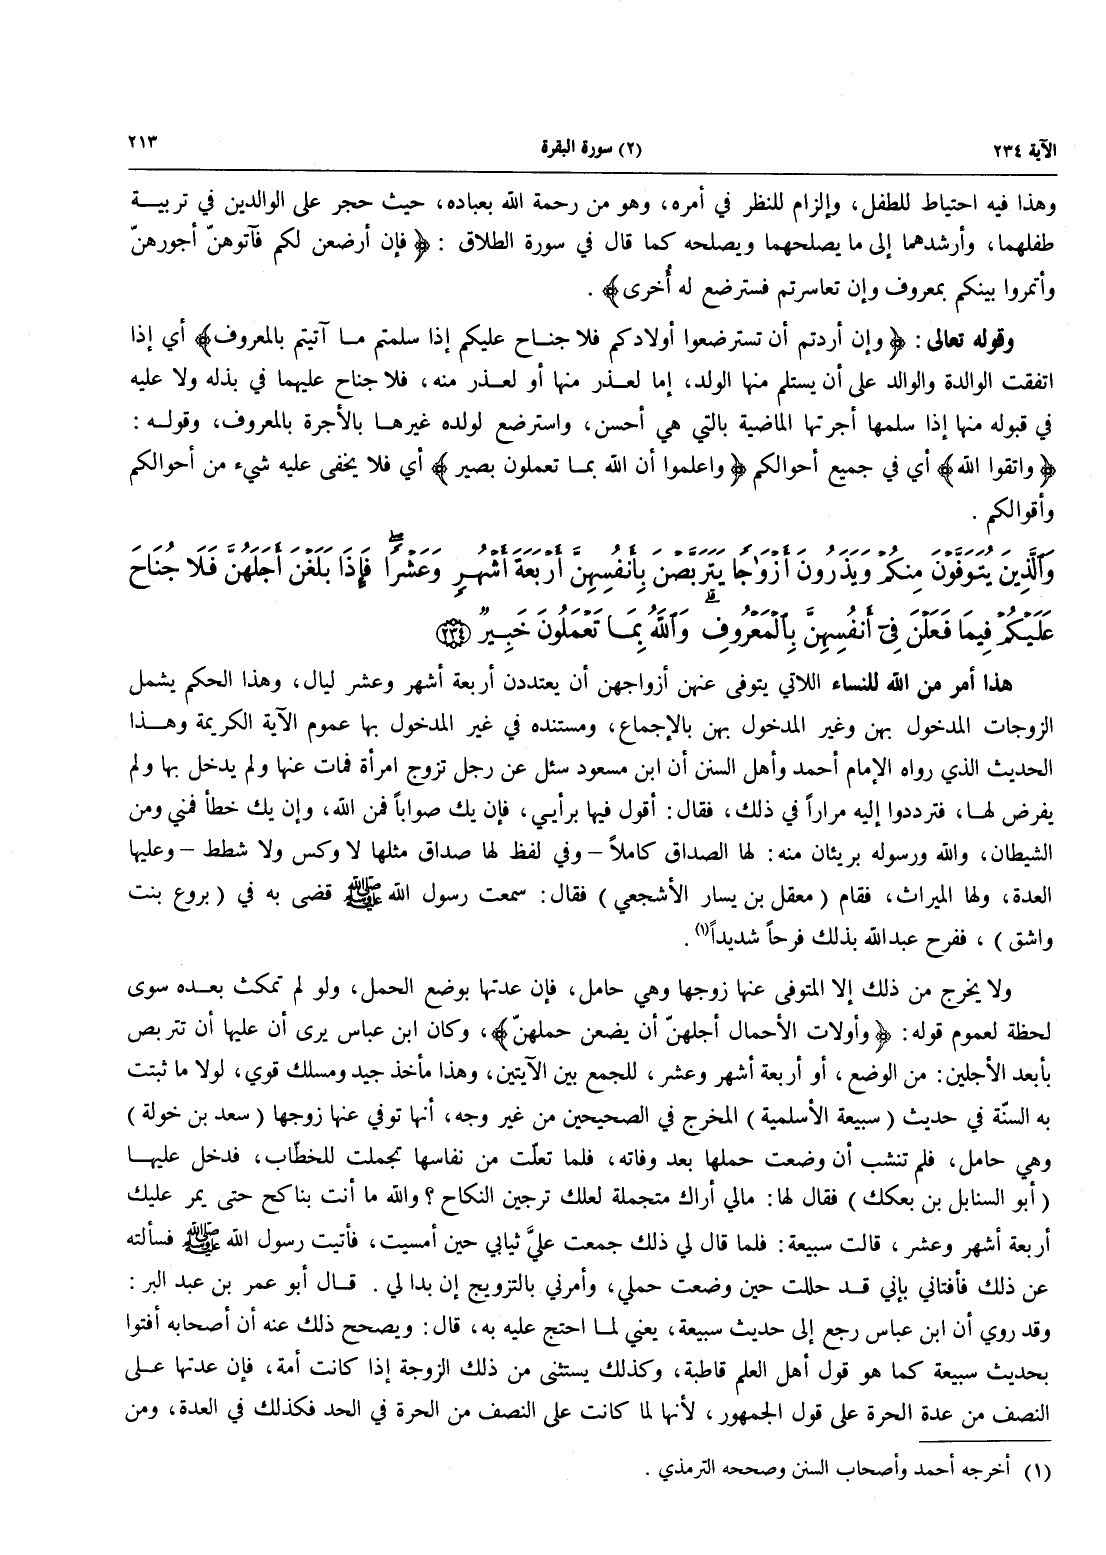 الآية ٢٣٤ (٢) سورة البقرة ٢١٣
وهذا فيه احتياط للطفل، وإلزام للنظر في أمره، وهو من رحمة الله بعباده، حيث حجر على الوالدين في تربيــة
طفلهما، وأرشدهما إلى ما يصلحهما ويصلحه كما قال في سورة الطلاق : ﴿ فإن أرضعن لكم فآتوهنّ أجورهنّ
وأتمروا بينكم بمعروف وإن تعاسرتم فسترضع له أُخرى﴾ .
وقوله تعالى : ﴿ وإن أردتم أن تسترضعوا أولادكم فلا جنـاح عليكم إذا سلمتم مـا آتيتم بالمعروف﴾ أي إذا
اتفقت الوالدة والوالد على أن يستلم منها الولد، إما لعـذر منها أو لعـذر منه، فلا جناح عليهما في بذله ولا عليه
في قبوله منها إذا سلمها أجرتها الماضية بالتي هي أحسن، واسترضع لولده غيرهـا بالأجرة بالمعروف، وقولـه :
﴿ واتقوا الله﴾ أي في جميع أحوالكم ﴿ واعلموا أن الله بمـا تعملون بصير ﴾ أي فلا يخفى عليه شيء من أحوالكم
وأقوالكم .
وَٱلَّذِينَ يُتَوَفَّوْنَ مِنكُمْ وَيَذَرُونَ أَزْوَٰجًا يَتَرَبَّصْنَ بِأَنفُسِهِنَّ أَرْبَعَةَ أَشْهُرٍ وَعَشْرًا ۖ فَإِذَا بَلَغْنَ أَجَلَهُنَّ فَلَا جُنَاحَ
عَلَيْكُمْ فِيمَا فَعَلْنَ فِىٓ أَنفُسِهِنَّ بِٱلْمَعْرُوفِ ۗ وَٱللَّهُ بِمَا تَعْمَلُونَ خَبِيرٌ ۝٢٣٤
هذا أمر من الله للنساء اللاتي يتوفى عنهن أزواجهن أن يعتددن أربعة أشهر وعشر ليال، وهذا الحكم يشمل
الزوجات المدخول بهن وغير المدخول بهن بالإجماع، ومستنده في غير المدخول بها عموم الآية الكريمة وهـذا
الحديث الذي رواه الإمام أحمد وأهل السنن أن ابن مسعود سئل عن رجل تزوج امرأة فمات عنها ولم يدخل بها ولم
يفرض لهـا، فترددوا إليه مراراً في ذلك، فقال: أقول فيها برأيي، فإن يك صواباً فمن الله، وإن يك خطأ فمني ومن
الشيطان، والله ورسوله بريئان منه: لها الصداق كاملاً – وفي لفظ لها صداق مثلها لا وكس ولا شطط – وعليها
العدة، ولها الميراث، فقام ( معقل بن يسار الأشجعي ) فقال: سمعت رسول الله ﷺ قضى به في ( بروع بنت
واشق ) ، ففرح عبدالله بذلك فرحاً شديداً(١) .
ولا يخرج من ذلك إلا المتوفى عنها زوجها وهي حامل، فإن عدتها بوضع الحمل، ولو لم تمكث بعـده سوى
لحظة لعموم قوله: ﴿ وأولات الأحمال أجلهنّ أن يضعن حملهنّ﴾، وكان ابن عباس يرى أن عليها أن تتربص
بأبعد الأجلين: من الوضع، أو أربعة أشهر وعشر، للجمع بين الآيتين، وهذا مأخذ جيد ومسلك قوي، لولا ما ثبتت
به السنّة في حديث ( سبيعة الأسلمية ) المخرج في الصحيحين من غير وجه، أنها توفي عنها زوجها ( سعد بن خولة )
وهي حامل، فلم تنشب أن وضعت حملها بعد وفاته، فلما تعلّت من نفاسها تجملت للخطّاب، فدخل عليهـا
( أبو السنابل بن بعكك ) فقال لها: مالي أراك متجملة لعلك ترجين النكاح ؟ والله ما أنت بناكح حتى يمر عليك
أربعة أشهر وعشر ، قالت سبيعة: فلما قال لي ذلك جمعت عليَّ ثيابي حين أمسيت، فأتيت رسول الله ﷺ فسألته
عن ذلك فأفتاني بإني قـد حللت حين وضعت حملي، وأمرني بالتزويج إن بدا لي . قـال أبو عمر بن عبد البر :
وقد روي أن ابن عباس رجع إلى حديث سبيعة، يعني لمـا احتج عليه به، قال: ويصحح ذلك عنه أن أصحابه أفتوا
بحديث سبيعة كما هو قول أهل العلم قاطبة، وكذلك يستثنى من ذلك الزوجة إذا كانت أمة، فإن عدتها عـلى
النصف من عدة الحرة على قول الجمهور ، لأنها لما كانت على النصف من الحرة في الحد فكذلك في العدة، ومن
(١) أخرجه أحمد وأصحاب السنن وصححه الترمذي .